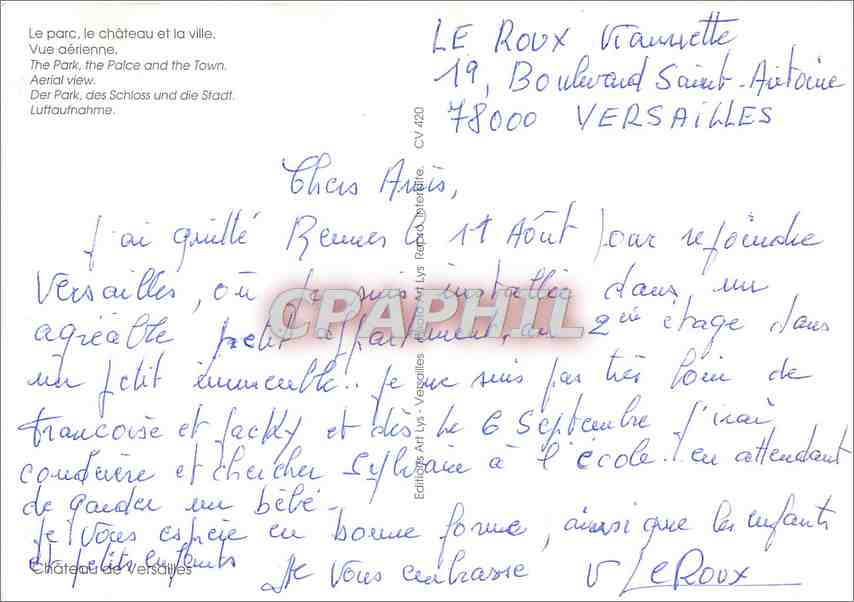 Le parc, le château et la ville.
Vue aérienne.
The Park, the Palce and the Town.
Aerial view.
Der Park, des Schloss und die Stadt.
Luftaufnahme.
LE ROUX Viannette
19, Boulevard Saint-Antoine
78000 VERSAILLES
Chers Amis,
j'ai quitté Rennes le 11 Août pour rejoindre
Versailles, où je suis installée dans un
agréable petit appartement, au 2ème étage dans
un petit immeuble.. je ne suis pas très loin de
Francoise et Jacky et dès le 6 Septembre j'irai
conduire et chercher Sylvain à l'école.. en attendant
de garder un bébé.
Je vous espère en bonne forme, ainsi que les enfants
et petits enfants
Je vous embrasse V LeRoux
Château de Versailles
Editions Art Lys - Versailles Art Lys Repro. interdite. CV 420
CPAPHIL